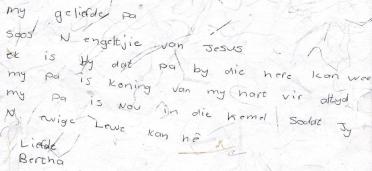 my geliefde pa
soos 'N engeltjie van Jesus
ek is bly dat pa by die here kan wee
my pa is koning van my hart vir altyd
my pa is nou in die hemel Sodat Jy
'N ewige Lewe kan hê
Liefde
Bertha